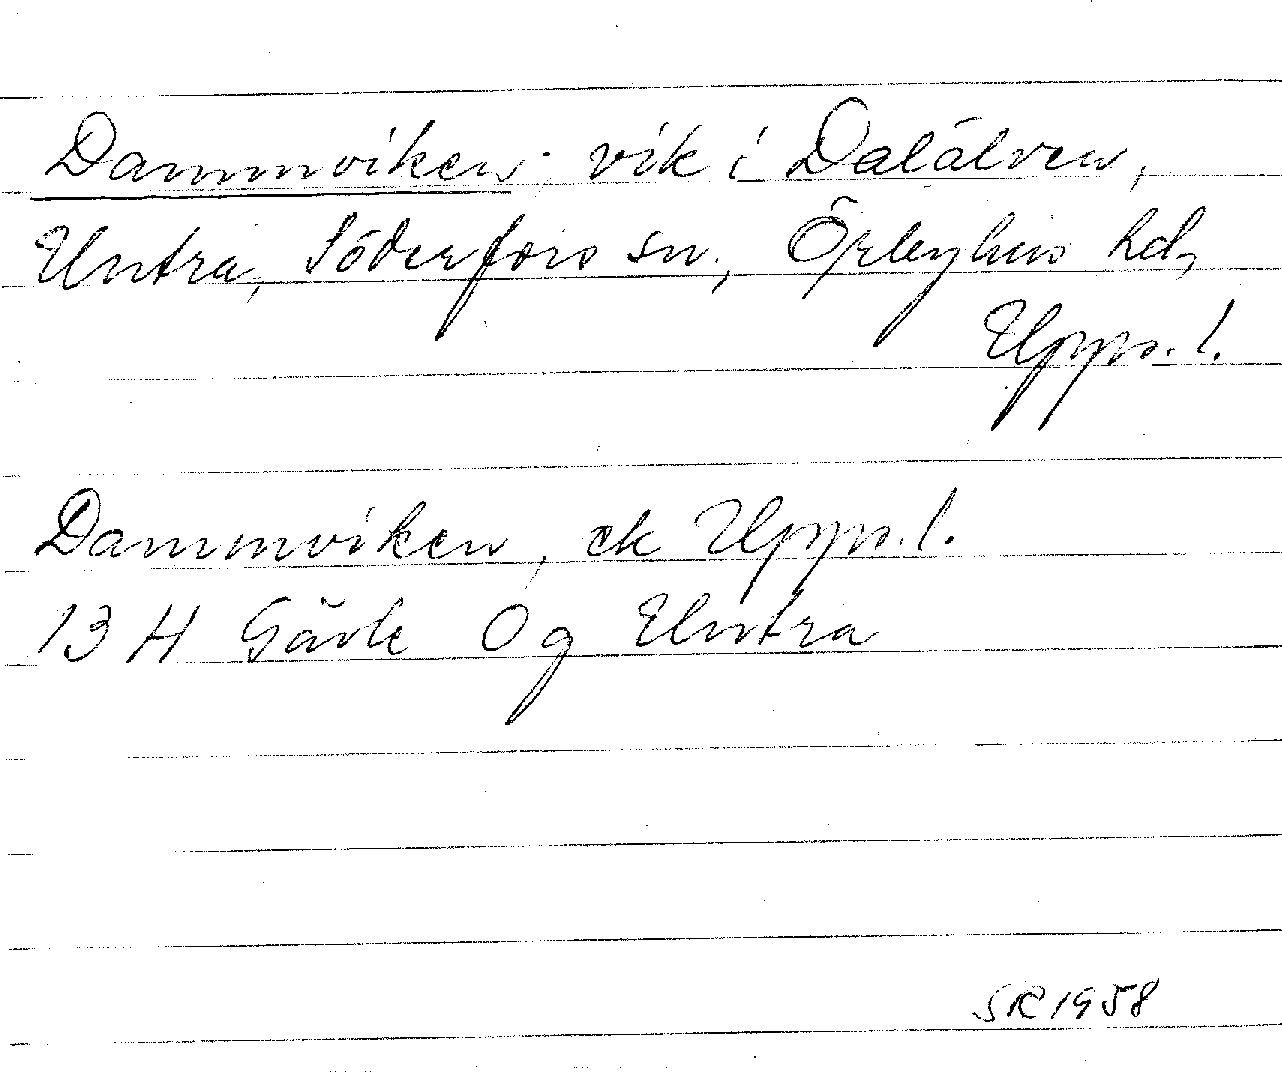 Dammviken, vik i Dalälven,
Untra, Söderfors sn., Örbyhus hd,
Upps. l.
Dammviken, ek Upps. l.
13 H Gävle 0 g Untra
SR 1958